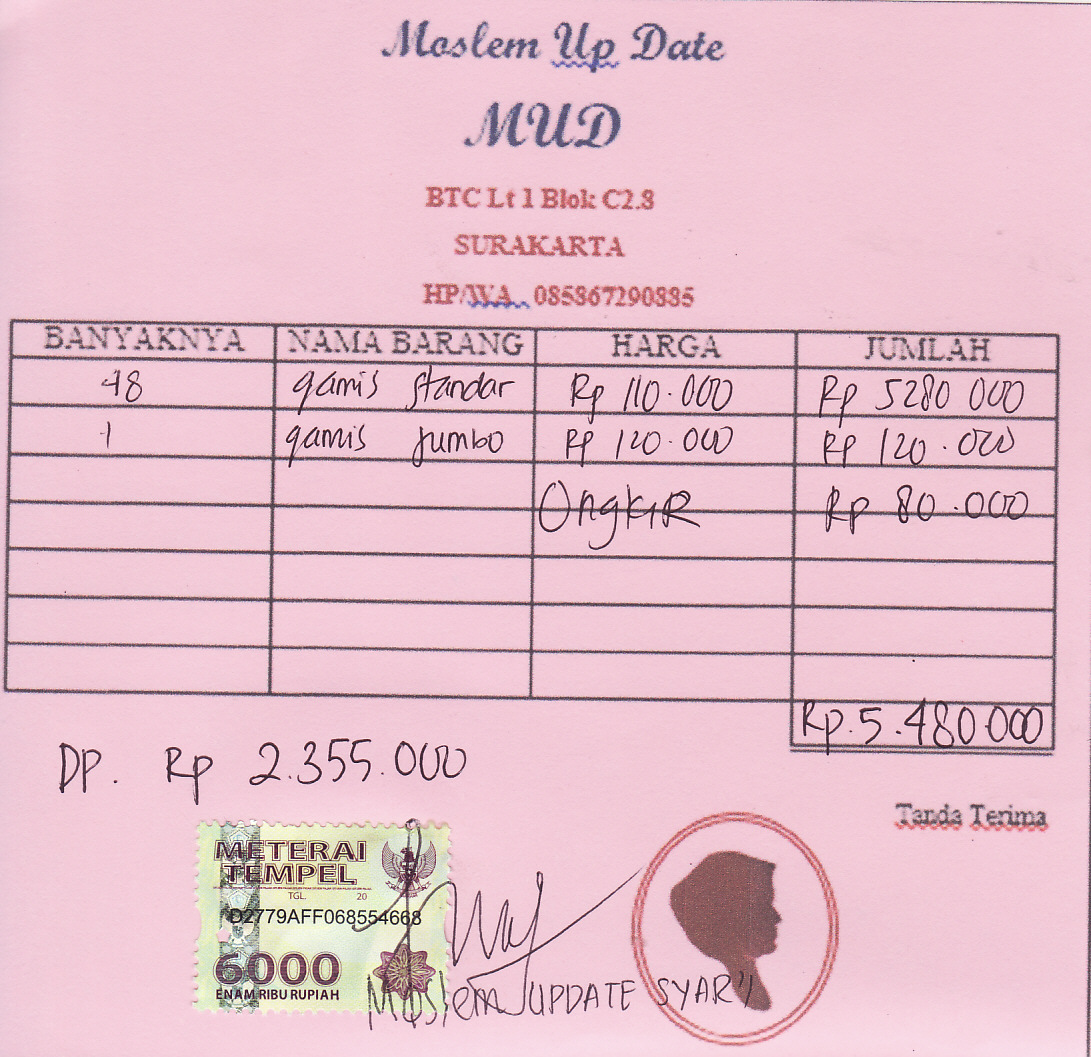 Moslem Up Date
MUD
BTC Lt 1 Blok C2.8
SURAKARTA
HP/WA 085867290885
BANYAKNYA NAMA BARANG HARGA JUMLAH
48 gamis standar Rp 110.000 Rp 5280 000
1 gamis jumbo Rp 120.000 Rp 120.000
Ongkir Rp 80.000
Rp.5.480.000
DP. Rp 2.355.000
Tanda Terima
METERAI
TEMPEL
TGL. 20
D2779AFF068554668
6000
ENAM RIBU RUPIAH
Moslem UPDATE SYAR'I